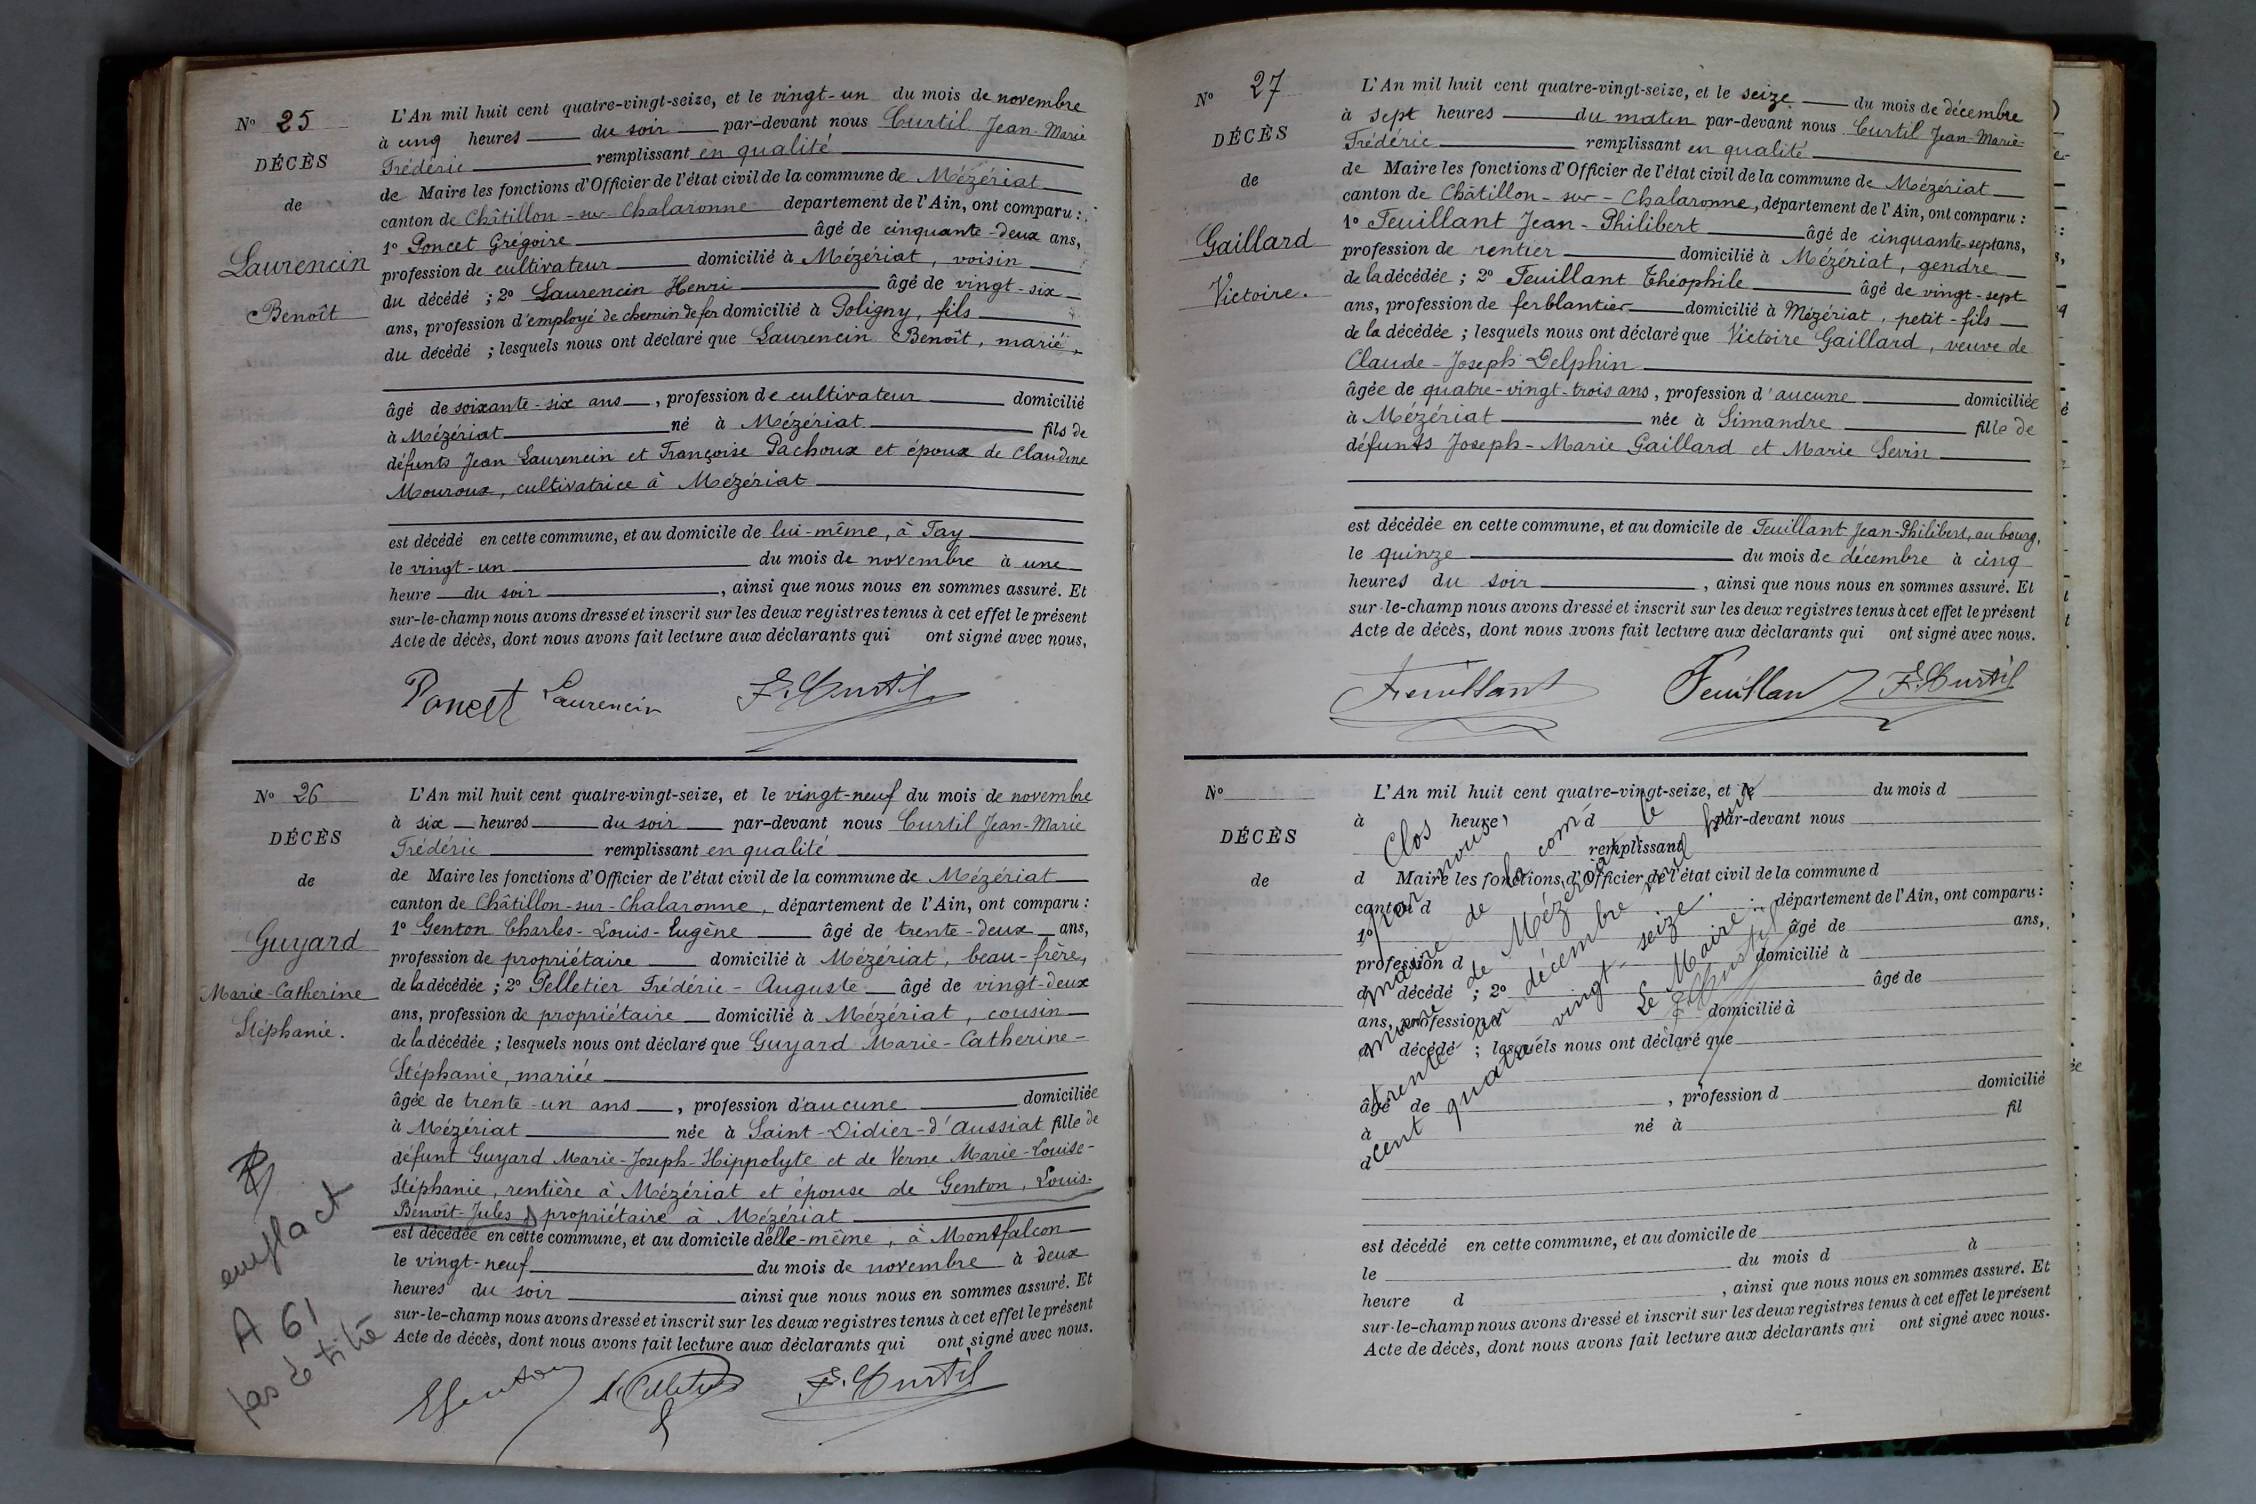 N° 25
DÉCÈS
de
Laurencin
Benoît
L'An mil huit cent quatre-vingt-seize, et le vingt-un du mois de novembre
à cinq heures du soir par-devant nous Curtil Jean-Marie
Frédéric remplissant en qualité
de Maire les fonctions d'Officier de l'état civil de la commune de Mézériat
canton de Châtillon-sur-Chalaronne département de l'Ain, ont comparu :
1° Poncet Grégoire âgé de cinquante-deux ans,
profession de cultivateur domicilié à Mézériat, voisin
du décédé ; 2° Laurencin Henri âgé de vingt-six
ans, profession d'employé de chemin de fer domicilié à Poligny, fils
du décédé ; lesquels nous ont déclaré que Laurencin Benoît, marié,
âgé de soixante-six ans, profession de cultivateur domicilié
à Mézériat né à Mézériat fils de
défunts Jean Laurencin et Françoise Pachoux et époux de Claudine
Mouroux, cultivatrice à Mézériat
est décédé en cette commune, et au domicile de lui-même, à Fay
le vingt-un du mois de novembre à une
heure du soir, ainsi que nous nous en sommes assuré. Et
sur-le-champ nous avons dressé et inscrit sur les deux registres tenus à cet effet le présent
Acte de décès, dont nous avons fait lecture aux déclarants qui ont signé avec nous.
Poncet Laurencin F. Curtil
N° 26
DÉCÈS
de
Guyard
Marie-Catherine
Stéphanie.
L'An mil huit cent quatre-vingt-seize, et le vingt-neuf du mois de novembre
à six heures du soir par-devant nous Curtil Jean-Marie
Frédéric remplissant en qualité
de Maire les fonctions d'Officier de l'état civil de la commune de Mézériat
canton de Châtillon-sur-Chalaronne, département de l'Ain, ont comparu :
1° Genton Charles-Louis-Eugène âgé de trente-deux ans,
profession de propriétaire domicilié à Mézériat, beau-frère,
de la décédée ; 2° Pelletier Frédéric-Auguste âgé de vingt-deux
ans, profession de propriétaire domicilié à Mézériat, cousin
de la décédée ; lesquels nous ont déclaré que Guyard Marie-Catherine-
Stéphanie, mariée
âgée de trente-un ans, profession d'aucune domiciliée
à Mézériat née à Saint-Didier-d'Aussiat fille de
défunt Guyard Marie-Joseph-Hippolyte et de Verne Marie-Louise-
Stéphanie, rentière à Mézériat et épouse de Genton, Louis-
Benoît-Jules propriétaire à Mézériat
est décédée en cette commune, et au domicile d'elle-même, à Montfalcon
le vingt-neuf du mois de novembre à deux
heures du soir ainsi que nous nous en sommes assuré. Et
sur-le-champ nous avons dressé et inscrit sur les deux registres tenus à cet effet le présent
Acte de décès, dont nous avons fait lecture aux déclarants qui ont signé avec nous.
A 61
EGenton F. Curtil
N° 27
DÉCÈS
de
Gaillard
Victoire.
L'An mil huit cent quatre-vingt-seize, et le seize du mois de décembre
à sept heures du matin par-devant nous Curtil Jean-Marie-
Frédéric remplissant en qualité
de Maire les fonctions d'Officier de l'état civil de la commune de Mézériat
canton de Châtillon-sur-Chalaronne, département de l'Ain, ont comparu :
1° Feuillant Jean-Philibert âgé de cinquante-sept ans,
profession de rentier domicilié à Mézériat, gendre
de la décédée ; 2° Feuillant Théophile âgé de vingt-sept
ans, profession de ferblantier domicilié à Mézériat, petit-fils
de la décédée ; lesquels nous ont déclaré que Victoire Gaillard, veuve de
Claude-Joseph Delphin
âgée de quatre-vingt-trois ans, profession d'aucune domiciliée
à Mézériat née à Simandre fille de
défunts Joseph-Marie Gaillard et Marie Sevin
est décédée en cette commune, et au domicile de Feuillant Jean-Philibert, au bourg,
le quinze du mois de décembre à cinq
heures du soir, ainsi que nous nous en sommes assuré. Et
sur-le-champ nous avons dressé et inscrit sur les deux registres tenus à cet effet le présent
Acte de décès, dont nous avons fait lecture aux déclarants qui ont signé avec nous.
Feuillant Feuillant F. Curtil
N°
DÉCÈS
de
L'An mil huit cent quatre-vingt-seize, et le du mois d
à heure, d par-devant nous
remplissant
d Maire les fonctions d'Officier de l'état civil de la commune d
canton d département de l'Ain, ont comparu :
1° âgé de ans,
profession d domicilié à
d décédé ; 2° âgé de
ans, profession d domicilié à
d décédé ; lesquels nous ont déclaré que
âgé de , profession d domicilié
à né à fil
d
est décédé en cette commune, et au domicile de
le du mois d à
heure d , ainsi que nous nous en sommes assuré. Et
sur-le-champ nous avons dressé et inscrit sur les deux registres tenus à cet effet le présent
Acte de décès, dont nous avons fait lecture aux déclarants qui ont signé avec nous.
Clos
par nous,
maire de la com-
mune de Mézériat le
trente un décembre mil huit
cent quatre vingt-seize.
Le Maire.
F. Curtil